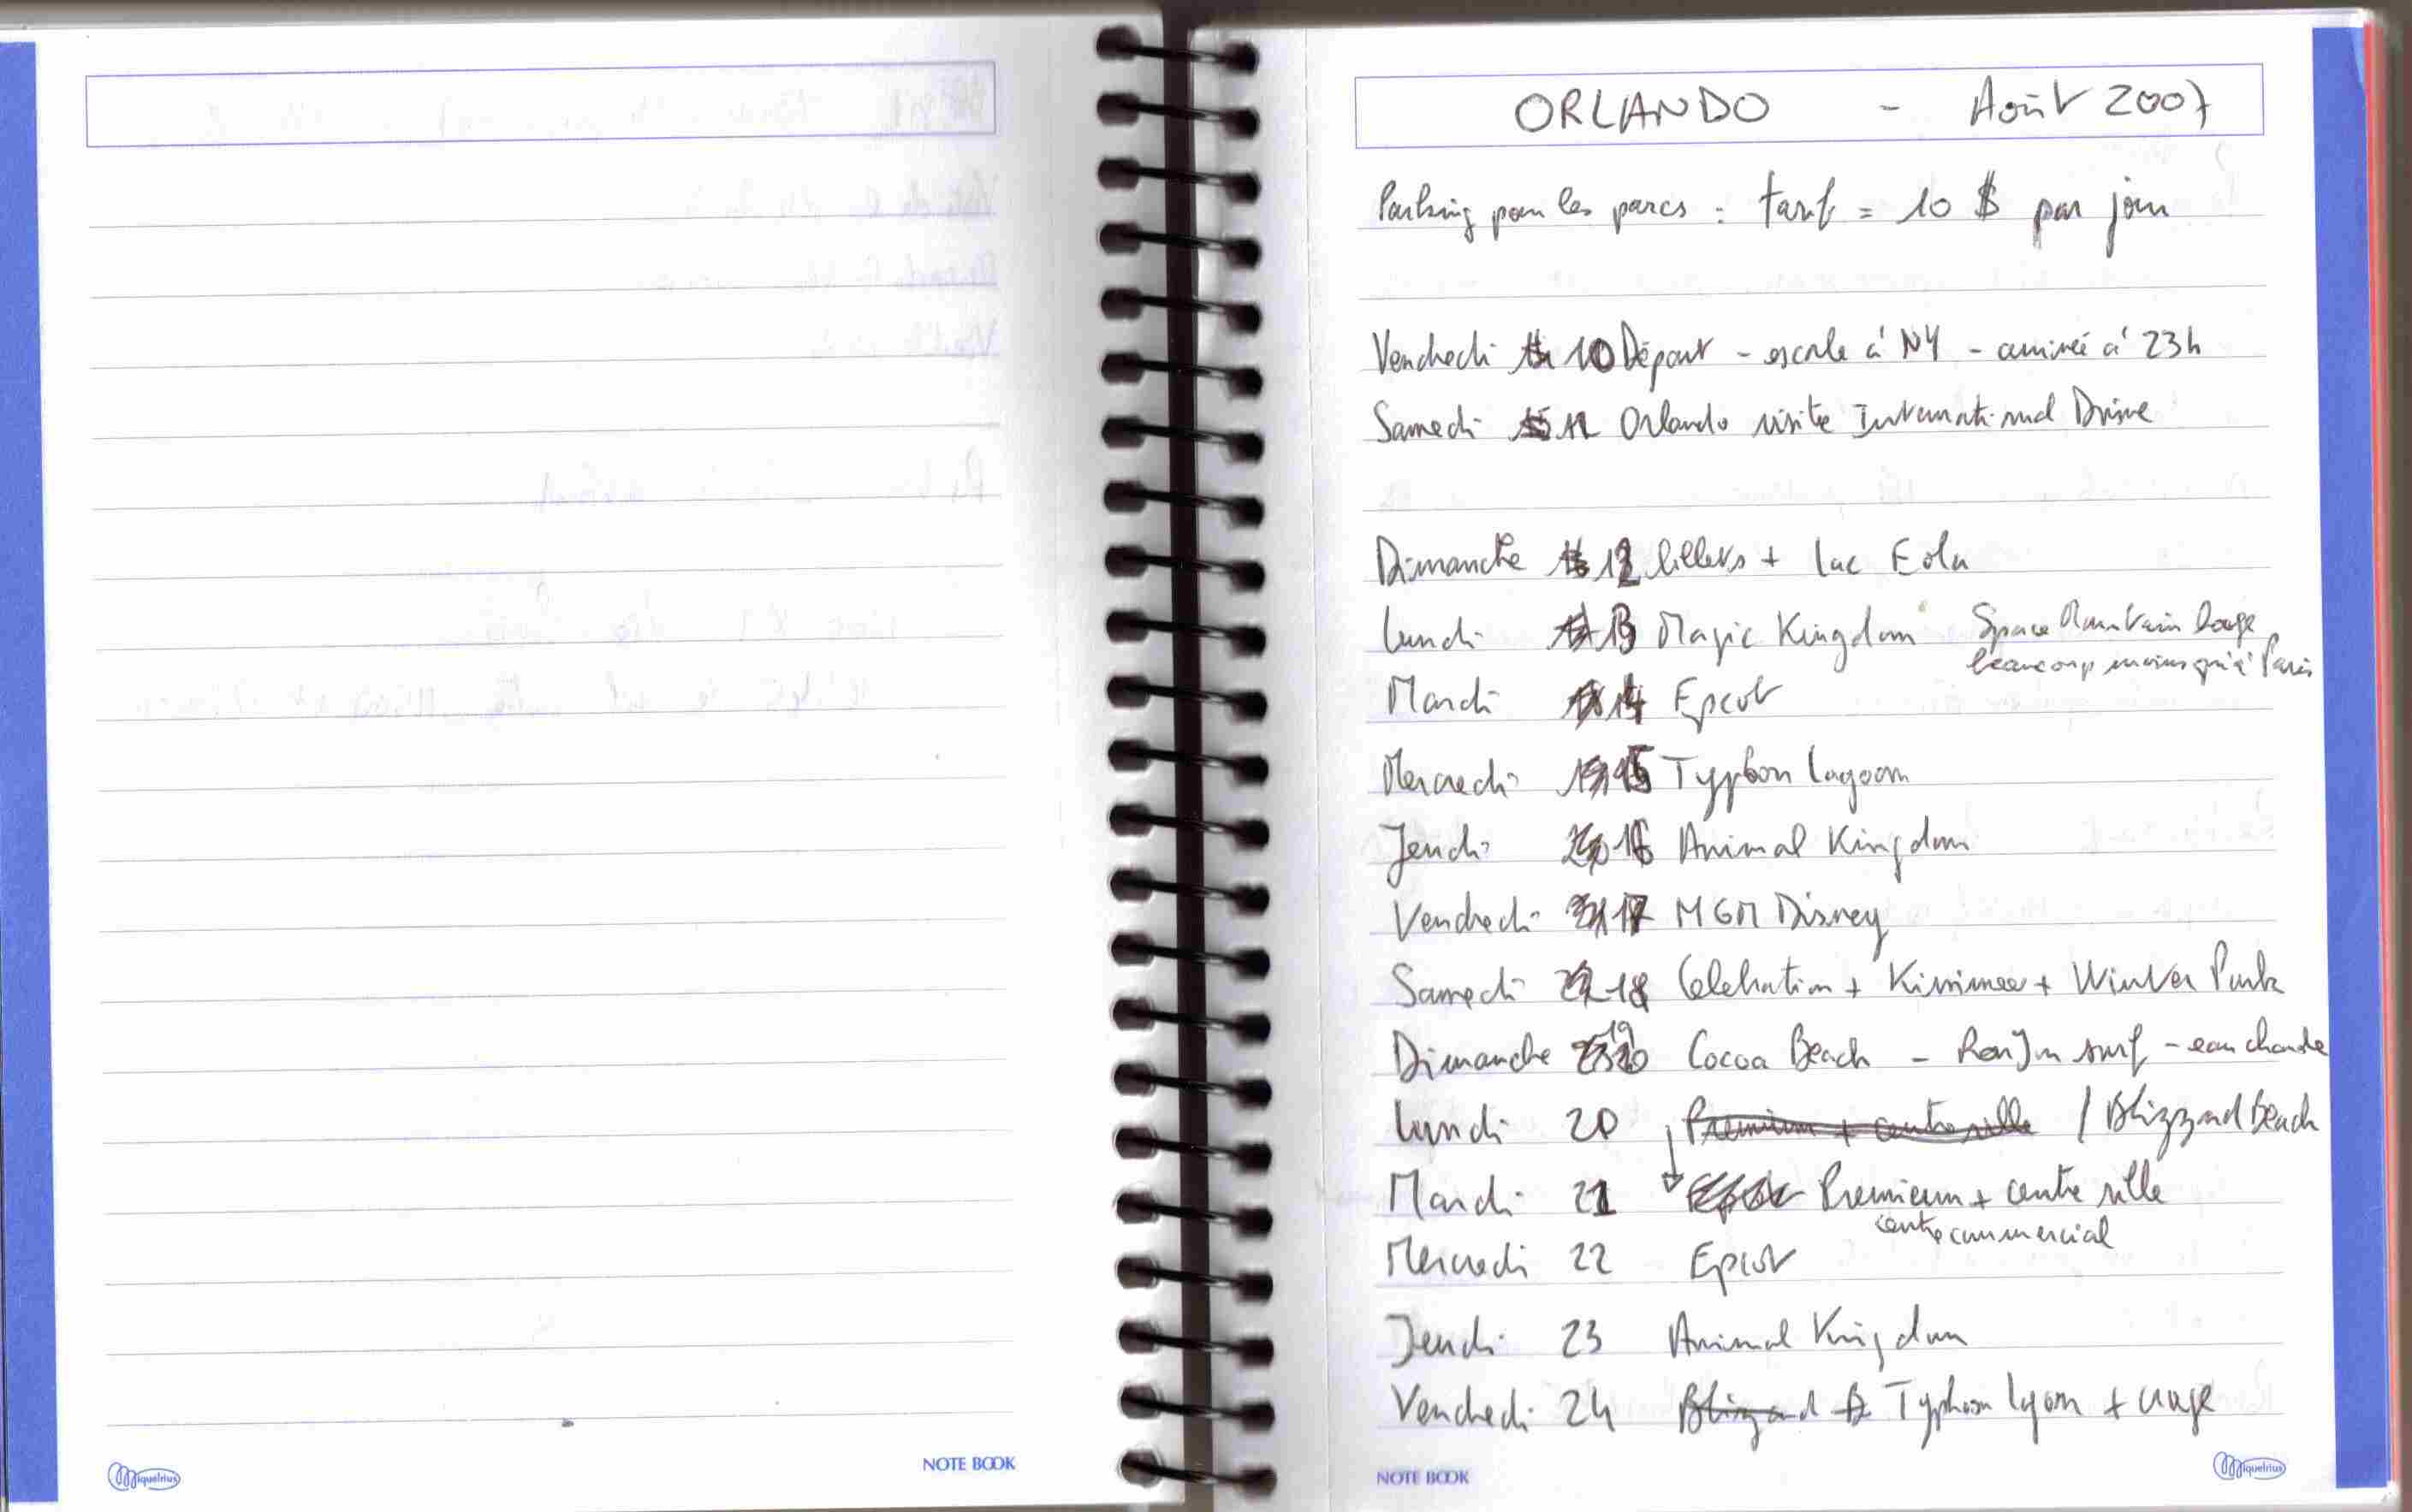 ORLANDO - Août 2007
Parking pour les parcs : tarif = 10 $ par jour
Vendredi 10 Départ - escale à NY - arrivée à 23h
Samedi 11 Orlando visite International Drive
Dimanche 12 billets + lac Eola
Lundi 13 Magic Kingdom Space Mountain bouge
beaucoup moins qu'à Paris
Mardi 14 Epcot
Mercredi 15 Typhon Lagoon
Jeudi 16 Animal Kingdom
Vendredi 17 MGM Disney
Samedi 18 Celebration + Kissimee + Winter Park
Dimanche 19 Cocoa Beach - Ron Jon surf - eau chaude
Lundi 20 Premium + centre ville / Blizzard Beach
Mardi 21 Premium + centre ville
centre commercial
Mercredi 22 Epcot
Jeudi 23 Animal Kingdom
Vendredi 24 Blizzard Typhon Lagoon + orage
Miquelrius
NOTE BOOK
NOTE BOOK
Miquelrius